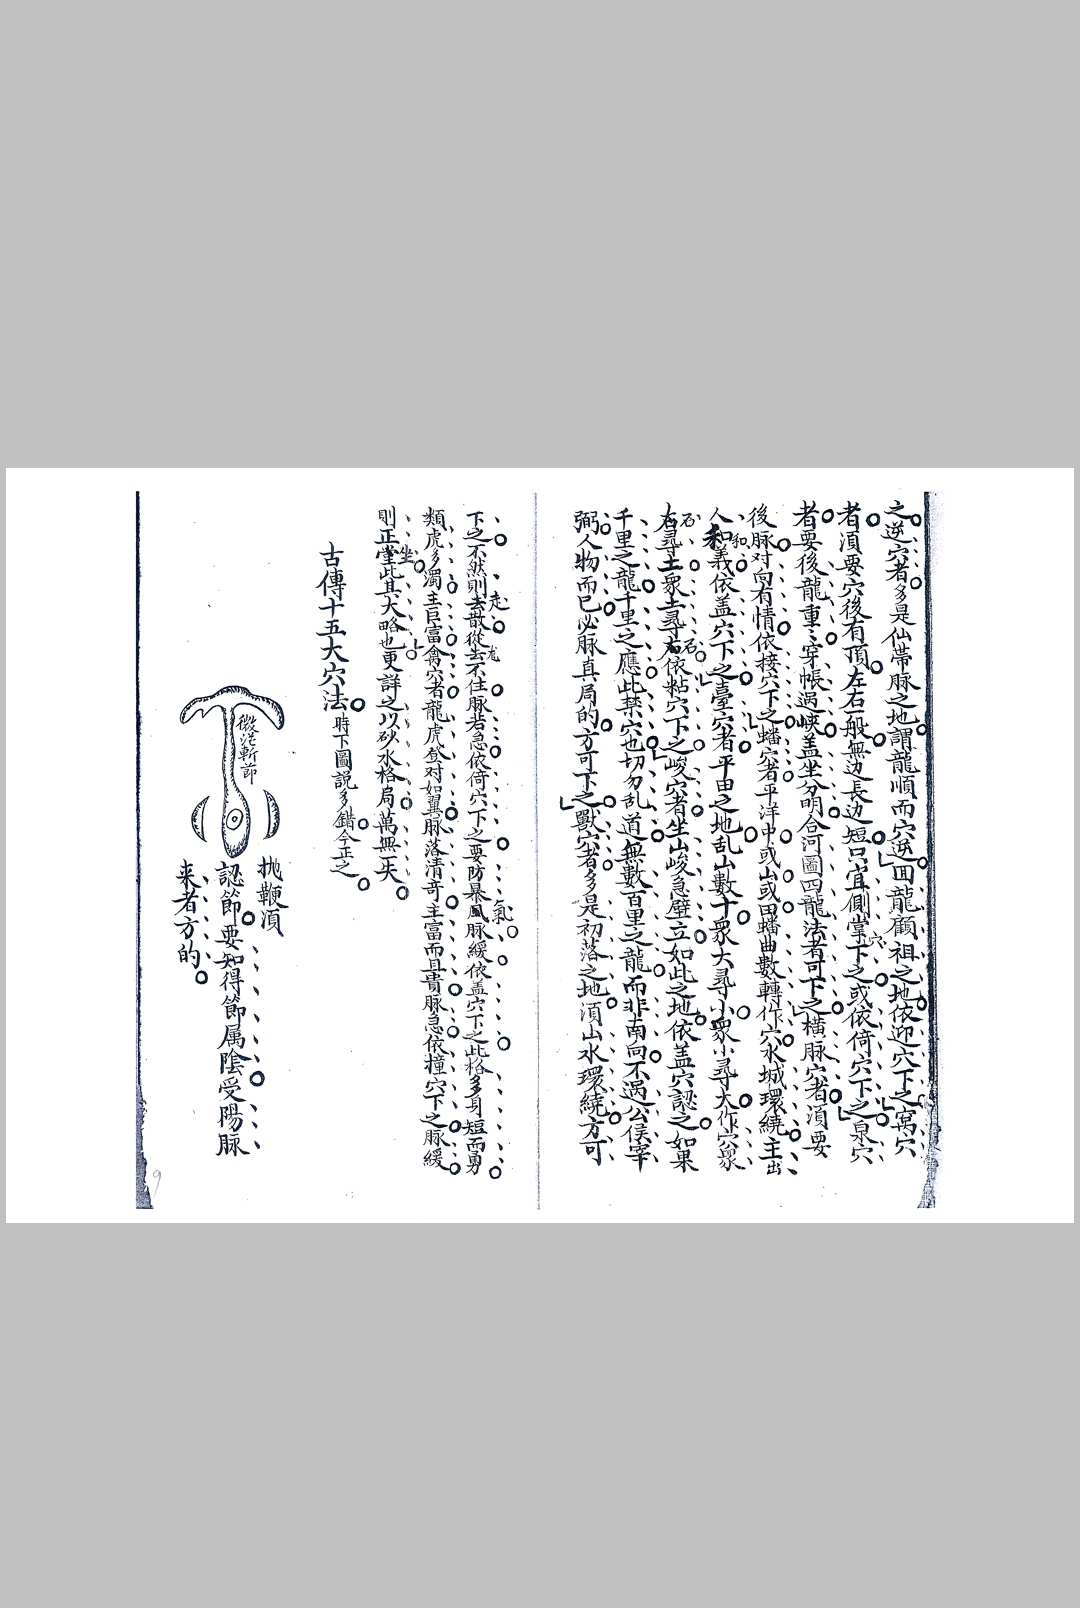 之逆穴者多是仙帶脉之地謂龍順而穴逆囬龍顧祖之地依迎穴下之窩穴
者湏要穴後有頂左右一般無边長边短只宜側掌下之或依倚穴下之泉穴
者要後龍重〻穿帳過峽盖坐分明合河圖四龍法者可下之橫脉穴者湏要
後脉对向有情依接穴下之蟠穴者平洋中或山或田蟠曲數轉作穴水城環繞主出
人和義依盖穴下之臺穴者平田之地乱山數十衆大尋小衆小尋大作穴衆
石尋土衆土尋石依粘穴下之峻穴者坐山峻急壁立如此之地依盖穴認之如果
千里之龍千里之應此禁穴也切勿乱道無數百里之龍而非南向不過公侯宰
弼人物而已必脉真局的方可下之獸穴者多是初落之地湏山水環繞方可
下之不然則去散從去不住脉若急依倚穴下之要防暴風脉緩依盖穴下之此格多身短而勇
走
氣
類虎多濁主巨富禽穴者龍虎登对如翼脉落清奇主富而且貴脉急依撞穴下之脉緩
則正堂此其大略也更詳之以砂水格局萬無一失
坐
古傳十五大穴法 時下圖説多錯今正之
微茫斬節
抛鞭湏
認節要知得節属陰受陽脉
来者方的
9